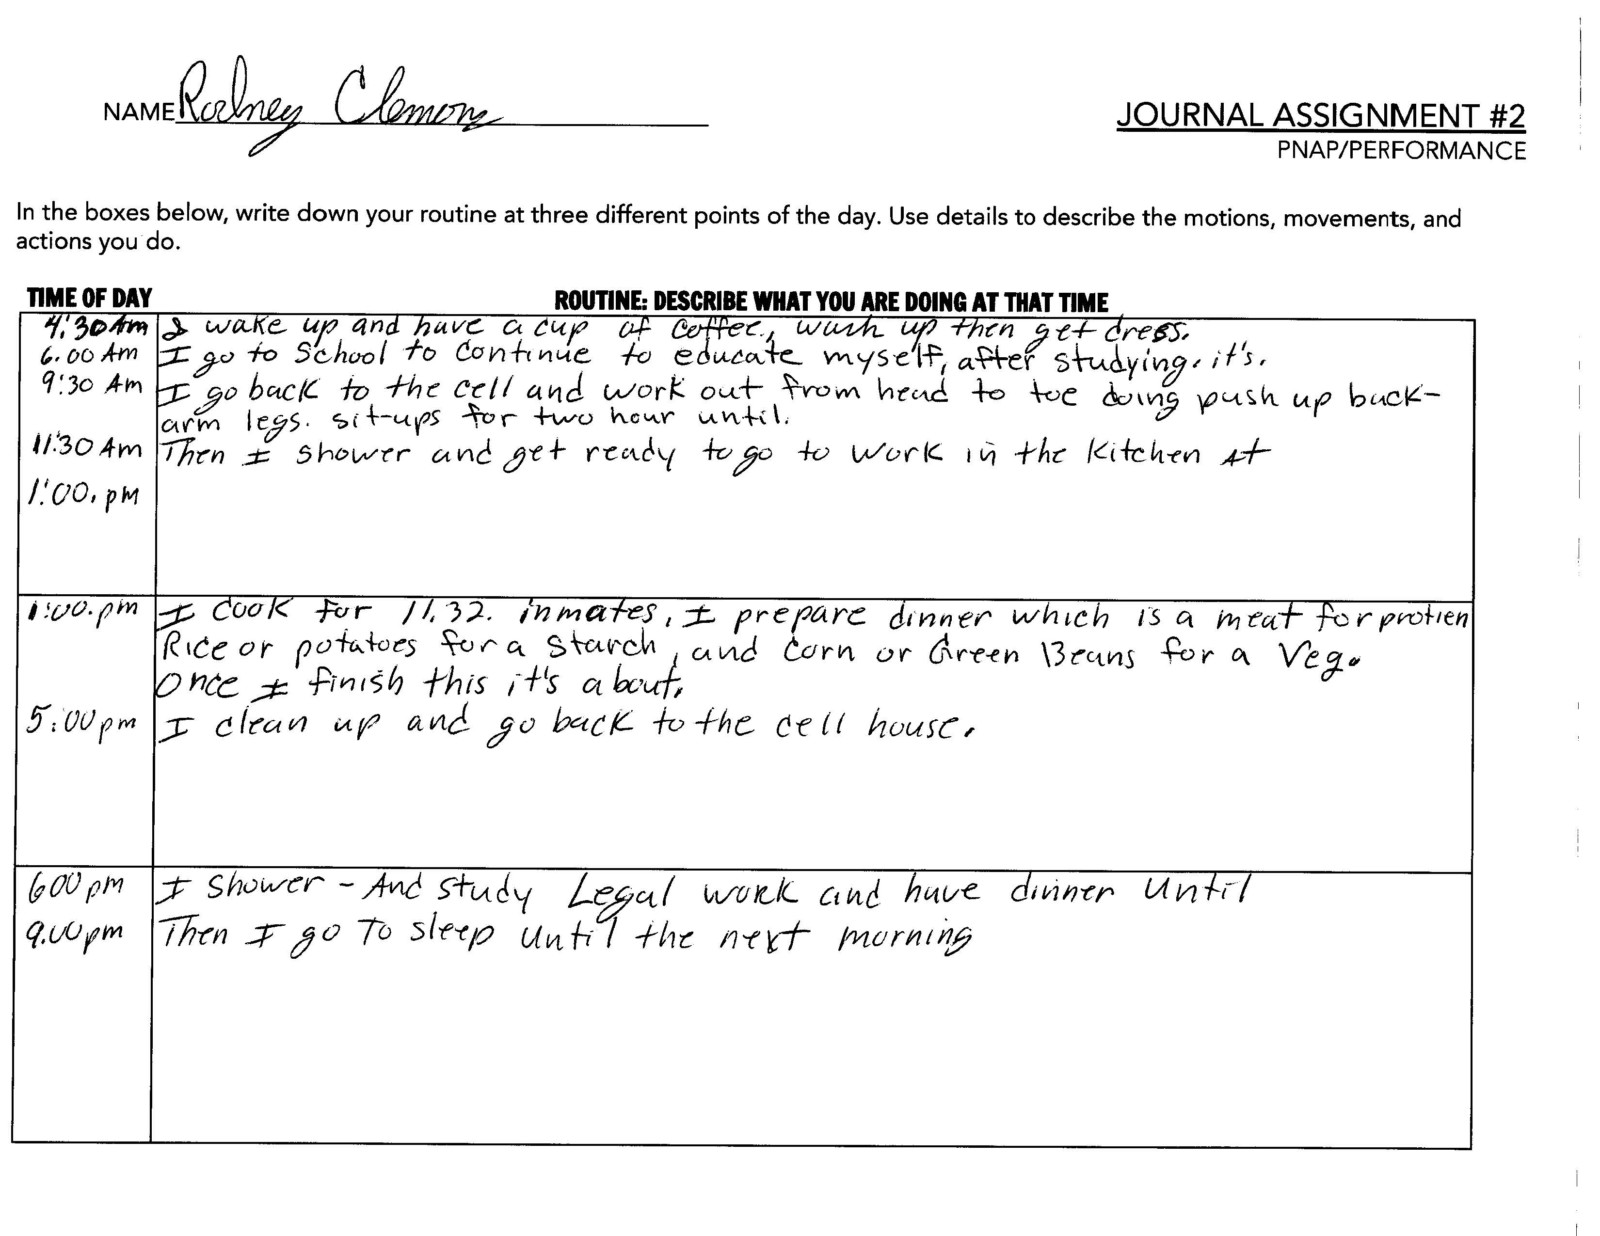 NAME Rodney Clemons
JOURNAL ASSIGNMENT #2
PNAP/PERFORMANCE
In the boxes below, write down your routine at three different points of the day. Use details to describe the motions, movements, and
actions you do.
TIME OF DAY ROUTINE: DESCRIBE WHAT YOU ARE DOING AT THAT TIME
4:30 Am I wake up and have a cup of coffee., wash up then get dress.
6.00 Am I go to School to continue to educate myself, after studying. it's.
9:30 Am I go back to the cell and work out from head to toe doing push up back-
arm legs. sit-ups for two hour until.
11:30 Am Then I shower and get ready to go to work in the kitchen at
1:00. pm
1:00.pm I cook for 11.32. inmates, I prepare dinner which is a meat for protien
Rice or potatoes for a Starch, and corn or Green Beans for a Veg.
Once I finish this it's about.
5:00pm I clean up and go back to the cell house.
600 pm I shower - And study Legal work and have dinner until
9.00pm Then I go To sleep until the next morning